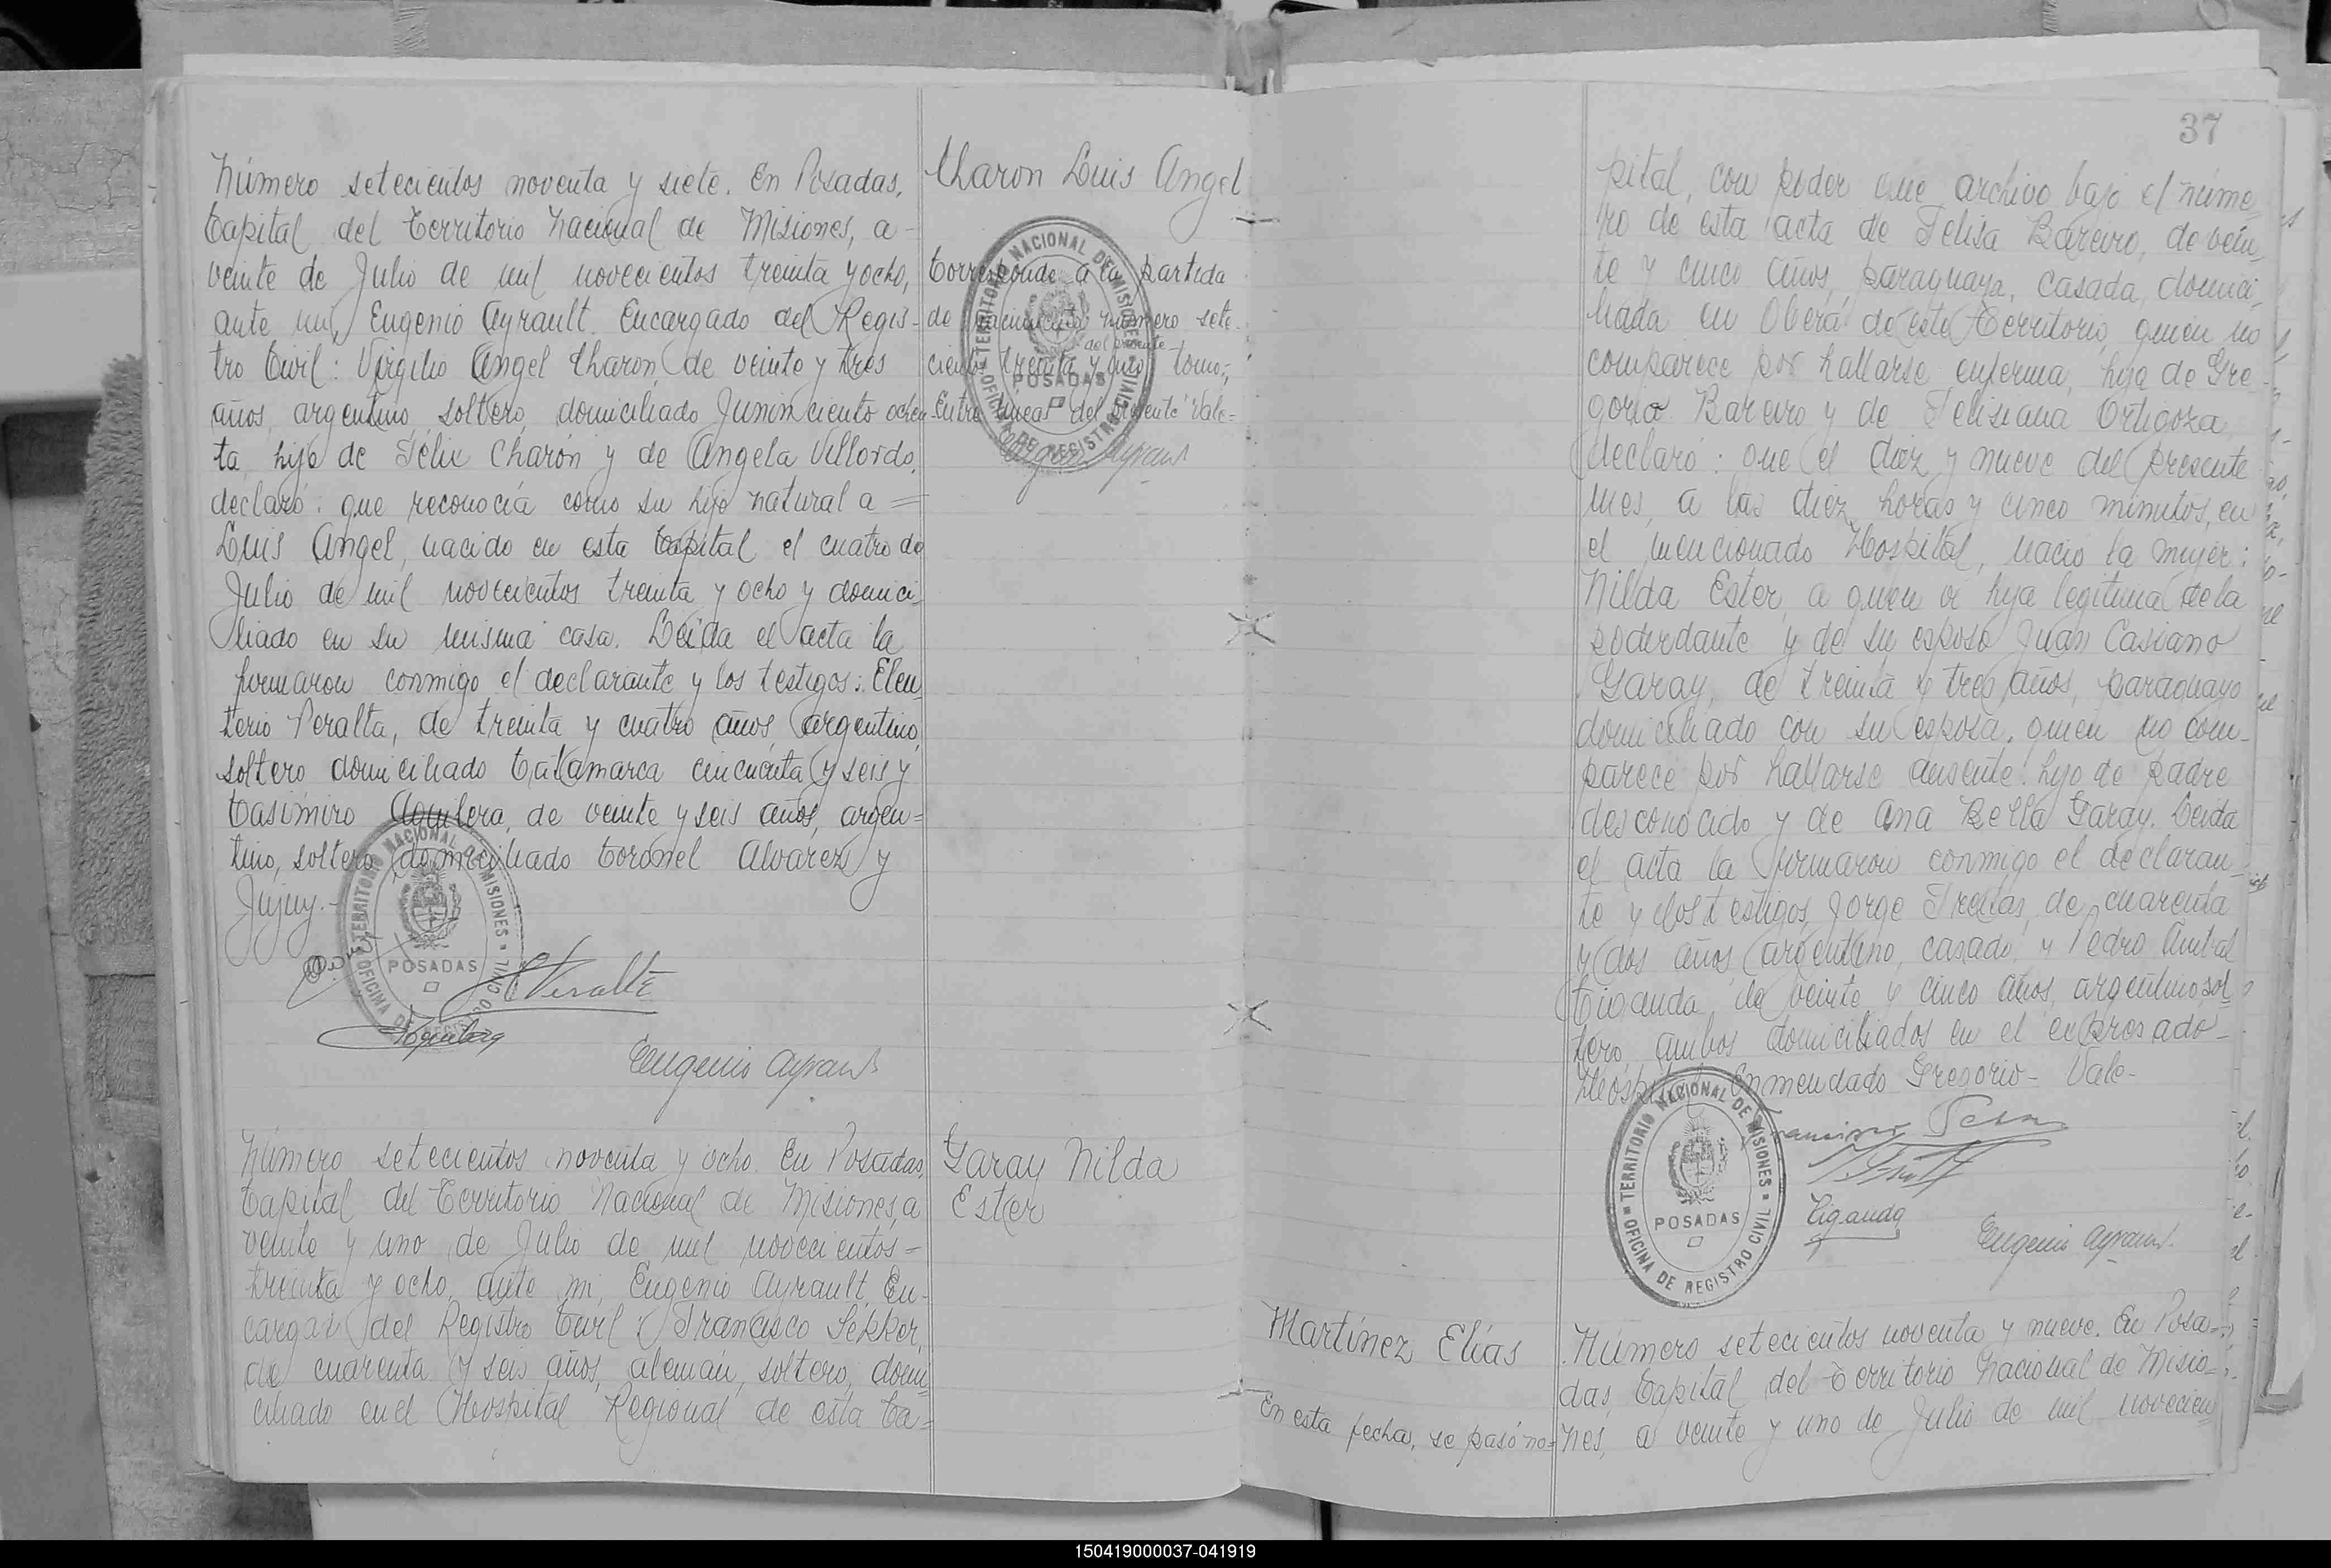 Número setecientos noventa y siete. En Posadas,
Capital del Territorio Nacional de Misiones, a-
veinte de Julio de mil novecientos treinta y ocho,
ante mí, Eugenio Ayrault Encargado del Regis-
tro Civil: Virgilio Angel Charon, de veinte y tres
años, argentino, soltero, domiciliado Junin ciento ochen
ta, hijo de Félix Charón y de Angela Villordo,
declaró: que reconocía como su hijo natural a =
Luis Angel, nacido en esta Capital el cuatro de
Julio de mil novecientos treinta y ocho y domici-
liado en su misma casa. Leída el acta la
firmaron conmigo el declarante y los testigos: Eleu
terio Peralta, de treinta y cuatro años, argentino,
soltero domiciliado Catamarca cincuenta y seis y
Casimiro Aguilera, de veinte y seis años, argen=
tino, soltero, domiciliado Coronel Alvarez y
Jujuy.-
TERRITORIO NACIONAL DE MISIONES
POSADAS
OFICINA DE REGISTRO CIVIL
Eugenio Ayrault
Charon Luis Angel
Corresponde a la partida
de nacimiento número sete-
del presente
cientos treinta y uno tomo;
Entre líneas "del presente" Vale=
TERRITORIO NACIONAL DE MISIONES
POSADAS
OFICINA DE REGISTRO CIVIL
Eugenio Ayrault
Número setecientos noventa y ocho. En Posadas,
Capital del Territorio Nacional de Misiones, a
veinte y uno de Julio de mil novecientos-
treinta y ocho, ante mi, Eugenio Ayrault, En-
cargar del Registro Civil: Francisco Sekker,
de cuarenta y seis años, alemán, soltero, domi
ciliado en el Hospital Regional de esta Ca=
Garay Nilda
Ester
37
pital, con poder que archivo bajo el núme-
ro de esta acta de Felisa Bareiro, de vein-
te y cinco años, paraguaya, casada, domici-
liada en Oberá de este Territorio, quien no
comparece por hallarse enferma, hija de Gre-
gorio Bareiro y de Felisiana Ortigoza
declaró: que el diez y nueve del presente
mes, a las diez horas y cinco minutos, en
el mencionado Hospital, nació la mujer:
Nilda Ester, a quien vi hija legitima de la
poderdante y de su esposo Juan Casiano
Garay, de treinta y tres años, paraguayo
domiciliado con su esposa, quien no com-
parece por hallarse ausente: hijo de padre
desconocido y de Ana Bella Garay. Leida
el acta la firmaron conmigo el declaran-
te y los testigos, Jorge Freitas, de cuarenta
y dos años argentino, casado, y Pedro Anibal
Ciganda, de veinte y cinco años, argentino, sol
tero, ambos domiciliados en el expresado-
Hospital Enmendado Gregorio- Vale-
TERRITORIO NACIONAL DE MISIONES
POSADAS
OFICINA DE REGISTRO CIVIL
Francisco
Ciganda
Eugenio Ayrault
Martínez Elías
En esta fecha, se pasó no=
Número setecientos noventa y nueve. En Posa-
das, Capital del Territorio Nacional de Misio-
nes, a veinte y uno de Julio de mil novecien
150419000037-041919